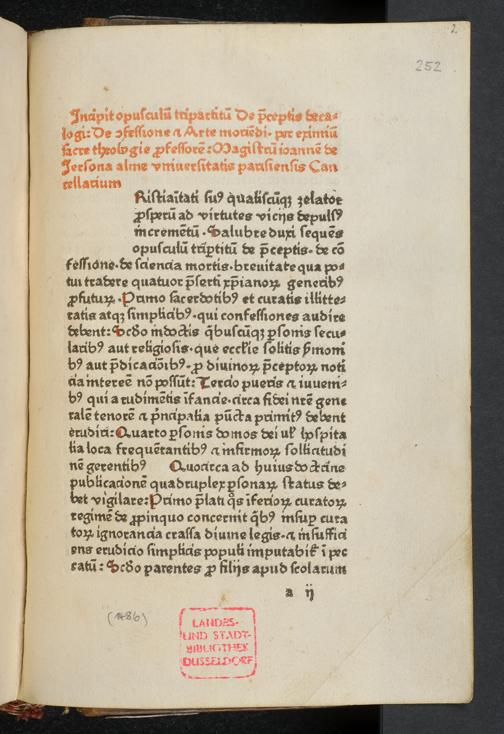 2
252
Incipit opusculū tripartitū De p̄ceptis deca-
logi: De ꝯfessione ⁊ Arte moriēdi· per eximiū
sacre theologie ꝓfessorē: Magistrū ioannē de
Jersona alme vniuersitatis parisiensis Can
cellarium
Ristiaītati suꝰ qualiscūqꝫ zelator
ꝓsperū ad virtutes vicijs depulsꝭ
incremētū· Salubre duxi sequēs
opusculū trip̄titū de p̄ceptis· de cō
fessione· de sciencia mortis· breuitate qua po-
tui tradere quatuor p̄serti xp̄ianoꝝ generibꝰ
ꝓfuturꝭ· Primo sacerdotibꝰ et curatis illitte-
ratis atqꝫ simplicibꝰ· qui confessiones audire
debent: Scd̄o īdoctis q̇buscūqꝫ ꝑsonis secu-
laribꝰ aut religiosis· que eccl̄ie solitis s̄moni
bꝰ aut p̄dicacōibꝰ· ꝓ diuinoꝝ p̄ceptoꝝ noti
cia interee nō possūt: Tercio pueris ⁊ iuueni-
bꝰ qui a rudimētis īfancie· circa fidei nr̄e gene
ralē tenorē ⁊ p̄ncipalia pūcta primitꝰ debent
erudiri: Quarto ꝑsonis domos dei ul̄ hospita
lia loca frequētantibꝰ ⁊ infirmoꝝ sollicitudi
nē gerentibꝰ Quocirca ad huius doctrine
publicationē quadruplex ꝑsonaꝝ status de-
bet vigilare: Primo p̄lati q̊s īferioꝝ curatoꝝ
regimē de ꝓpinquo concernit q̇bꝰ insuꝑ cura
toꝝ ignorancia crassa diuine legis· ⁊ insuffici
ens erudicio simplicis populi imputabit᷑ ī pec
catū: Scd̄o parentes ꝓ filijs apud scolarum
a ij
(1486)
LANDES-
UND STADT-
BIBLIOTHEK
DÜSSELDORF